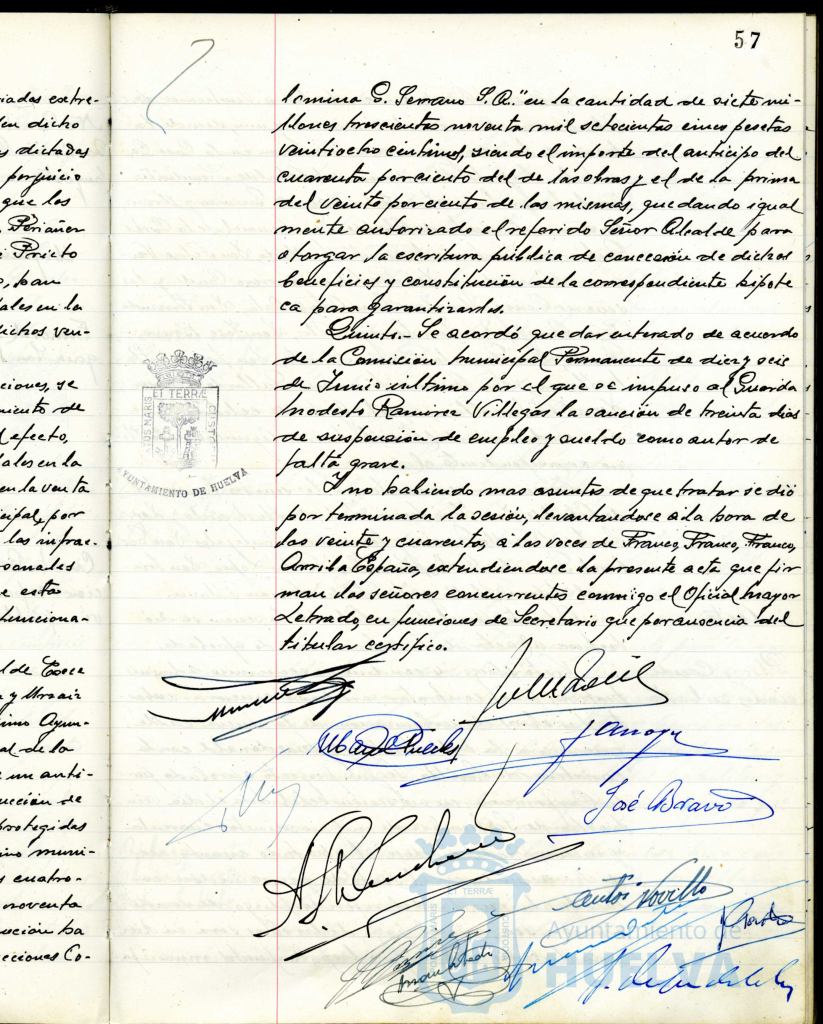 57
iadas extre-
en dicho
s dictadas
perjuicio
que los
Periañez
Prieto
o, han
ales en la
ichos ven-
ciones, se
miento de
efecto,
ales en la
en la venta
cipal, por
las infrac-
sonales
e esta
funciona-
l de Exce
mo Ayun-
al de la
e un anti-
ucción de
protegidas
no muni-
s cuatro-
noventa
ución ha
ecciones Co-
lomina G. Serrano S.A." en la cantidad de siete mi-
llones trescientas noventa mil setecientas cinco pesetas
veintiocho centimos, siendo el importe del anticipo del
cuarenta por ciento del de las obras y el de la prima
del veinte por ciento de las mismas, quedando igual
mente autorizado el referido Señor Alcalde para
otorgar la escritura pública de concesión de dichos
beneficios y constitución de la correspondiente hipote
ca para garantizarlos.
Quinto.- Se acordó quedar enterado de acuerdo
de la Comisión Municipal Permanente de diez y seis
de Junio último por el que se impuso al Guarda
Modesto Ramirez Villegas la sanción de treinta dias
de suspensión de empleo y sueldo como autor de
falta grave.
Y no habiendo mas asuntos de que tratar se dió
por terminada la sesión, levantandose a la hora de
las veinte y cuarenta, a las voces de Franco, Franco, Franco,
Arriba España, extendiendose la presente acta que fir
man los señores concurrentes conmigo el Oficial Mayor
Letrado, en funciones de Secretario que por ausencia del
titular certifico.
PORTUS MARIS ET TERRÆ CUSTODIA
AYUNTAMIENTO DE HUELVA
José Bravo
Ayuntamiento de
HUELVA